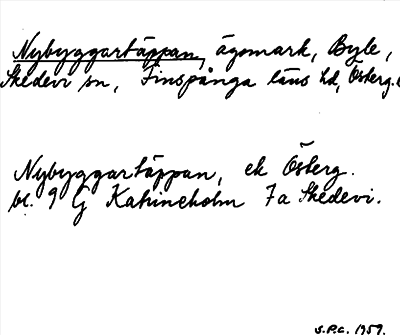 Nybyggartäppan, ägomark, Byle,
Skedevi sn, Finspånga läns hd, Österg.
Nybyggartäppan, ek Österg.
bl. 9 G Katrineholm 7a Skedevi.
S.P.C. 1959.